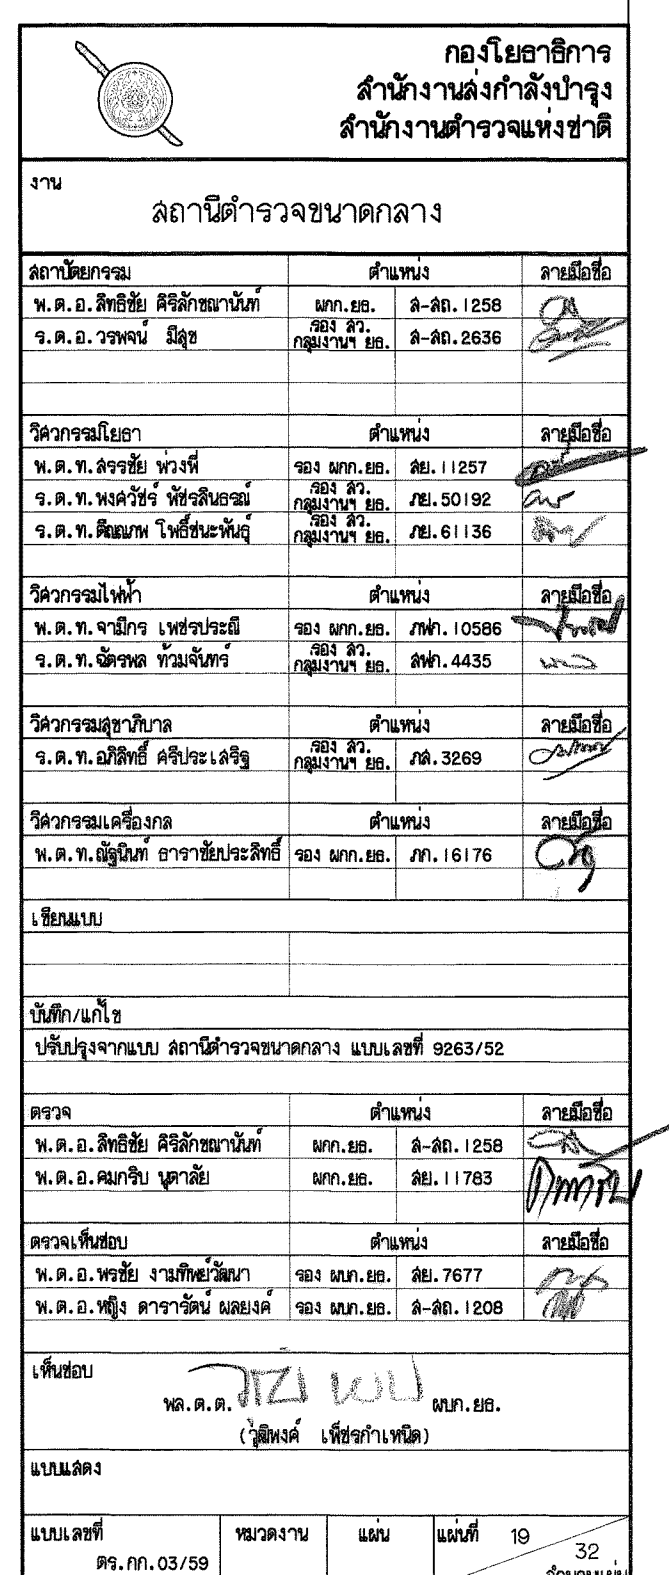 กองโยธาธิการ
สำนักงานส่งกำลังบำรุง
สำนักงานตำรวจแห่งชาติ
งาน
สถานีตำรวจขนาดกลาง
สถาปัตยกรรม ตำแหน่ง ลายมือชื่อ
พ.ต.อ.สิทธิชัย ศิริลักขณานันท์ ผกก.ยธ. ส-สถ.1258
ร.ต.อ.วรพจน์ มีสุข รอง สว. กลุ่มงานฯ ยธ. ส-สถ.2636
วิศวกรรมโยธา ตำแหน่ง ลายมือชื่อ
พ.ต.ท.สรรชัย พ่วงพี่ รอง ผกก.ยธ. สย.11257
ร.ต.ท.พงศ์วัชร์ พัชรสินธรณ์ รอง สว. กลุ่มงานฯ ยธ. ภย.50192
ร.ต.ท.ติณณภพ โพธิ์ชนะพันธุ์ รอง สว. กลุ่มงานฯ ยธ. ภย.61136
วิศวกรรมไฟฟ้า ตำแหน่ง ลายมือชื่อ
พ.ต.ท.จามีกร เพชรประณี รอง ผกก.ยธ. ภฟก.10586
ร.ต.ท.ฉัตรพล ท้วมจันทร์ รอง สว. กลุ่มงานฯ ยธ. สฟก.4435
วิศวกรรมสุขาภิบาล ตำแหน่ง ลายมือชื่อ
ร.ต.ท.อภิสิทธิ์ ศรีประเสริฐ รอง สว. กลุ่มงานฯ ยธ. ภส.3269
วิศวกรรมเครื่องกล ตำแหน่ง ลายมือชื่อ
พ.ต.ท.ณัฐนินท์ ธาราชัยประสิทธิ์ รอง ผกก.ยธ. ภก.16176
เขียนแบบ
บันทึก/แก้ไข
ปรับปรุงจากแบบ สถานีตำรวจขนาดกลาง แบบเลขที่ 9263/52
ตรวจ ตำแหน่ง ลายมือชื่อ
พ.ต.อ.สิทธิชัย ศิริลักขณานันท์ ผกก.ยธ. ส-สถ.1258
พ.ต.อ.คมกริบ นุตาลัย ผกก.ยธ. สย.11783
ตรวจเห็นชอบ ตำแหน่ง ลายมือชื่อ
พ.ต.อ.พรชัย งามทิพย์วัฒนา รอง ผบก.ยธ. สย.7677
พ.ต.อ.หญิง ดารารัตน์ ผลยงค์ รอง ผบก.ยธ. ส-สถ.1208
เห็นชอบ
พล.ต.ต. ผบก.ยธ.
(วุฒิพงศ์ เพ็ชรกำเหนิด)
แบบแสดง
แบบเลขที่ หมวดงาน แผ่น แผ่นที่ 19
ตร.กก.03/59 32